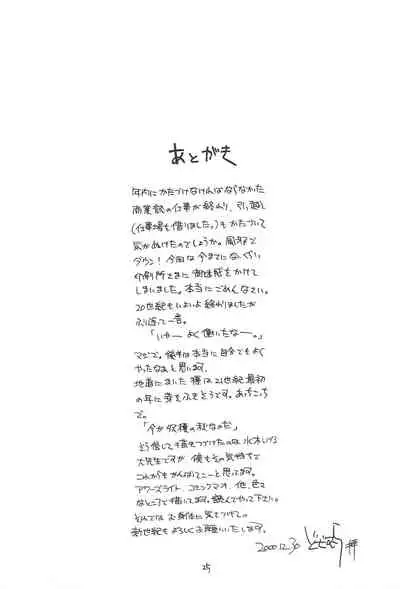 あとがき
年内にかたづけなければならなかった
商業誌の仕事が終わり、引っ越し
(仕事場も借りました。)もかたづいて
気がぬけたのでしょうか。風邪で
ダウン!今回は今までにないぐらい
印刷所さまに御迷惑をかけて
しまいました。本当にごめんなさい。
20世紀もいよいよ終わりましたが
ふり返って一言。
「いやーよく働いたなー。」
マジで。後半は本当に自分でもよく
やったなぁと思います。
地道にまいた種は21世紀最初
の年に芽をふきそうです。あちこち
で。
「今が収穫の秋なのだ」
そう信じて描きつづけたのは水木しげる
大先生ですが、僕もその気持ちで
これからもがんばってこーと思ってます。
アワーズライト、コミックマオ、他、色々
なところで描いてます。読んでやって下さい。
それではお身体に気をつけて。
新世紀もよろしくお願いいたします。
2000.12.30
拝
25